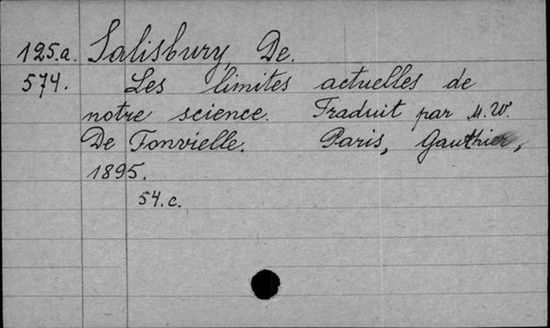 125.a. Salisbury, De.
574. Les limites actuelles de
notre science. Traduit par M. W.
De Fonvielle. Paris, Gauthier,
1895.
54.c.